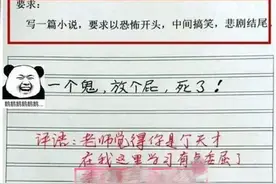 要求：
写一篇小说，要求以恐怖开头，中间搞笑，悲剧结尾
一个鬼，放个屁，死了！
评语：老师觉得你是个天才
在我这里学习有点委屈了